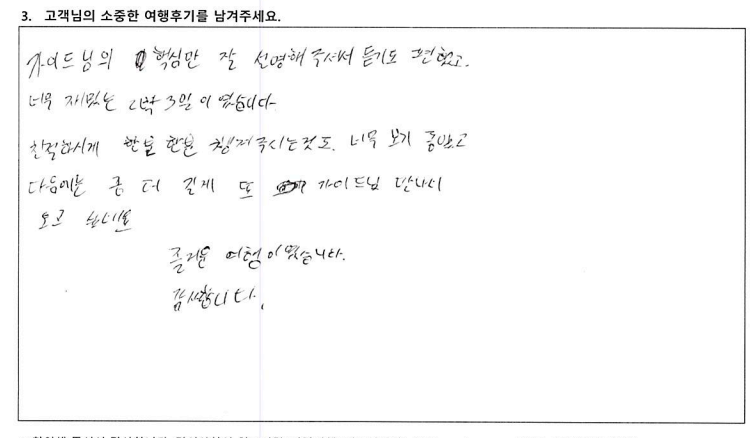 3. 고객님의 소중한 여행후기를 남겨주세요.
가이드님의 핵심만 잘 설명해주셔서 듣기도 편했고.
너무 재밌는 2박 3일이였습니다
친절하시게 한분 한분 챙겨주시는것도. 너무 보기 좋았고
다음에는 좀 더 길게 또 가이드님 만나서
오고 싶네요
즐거운 여행이였습니다.
감사합니다.